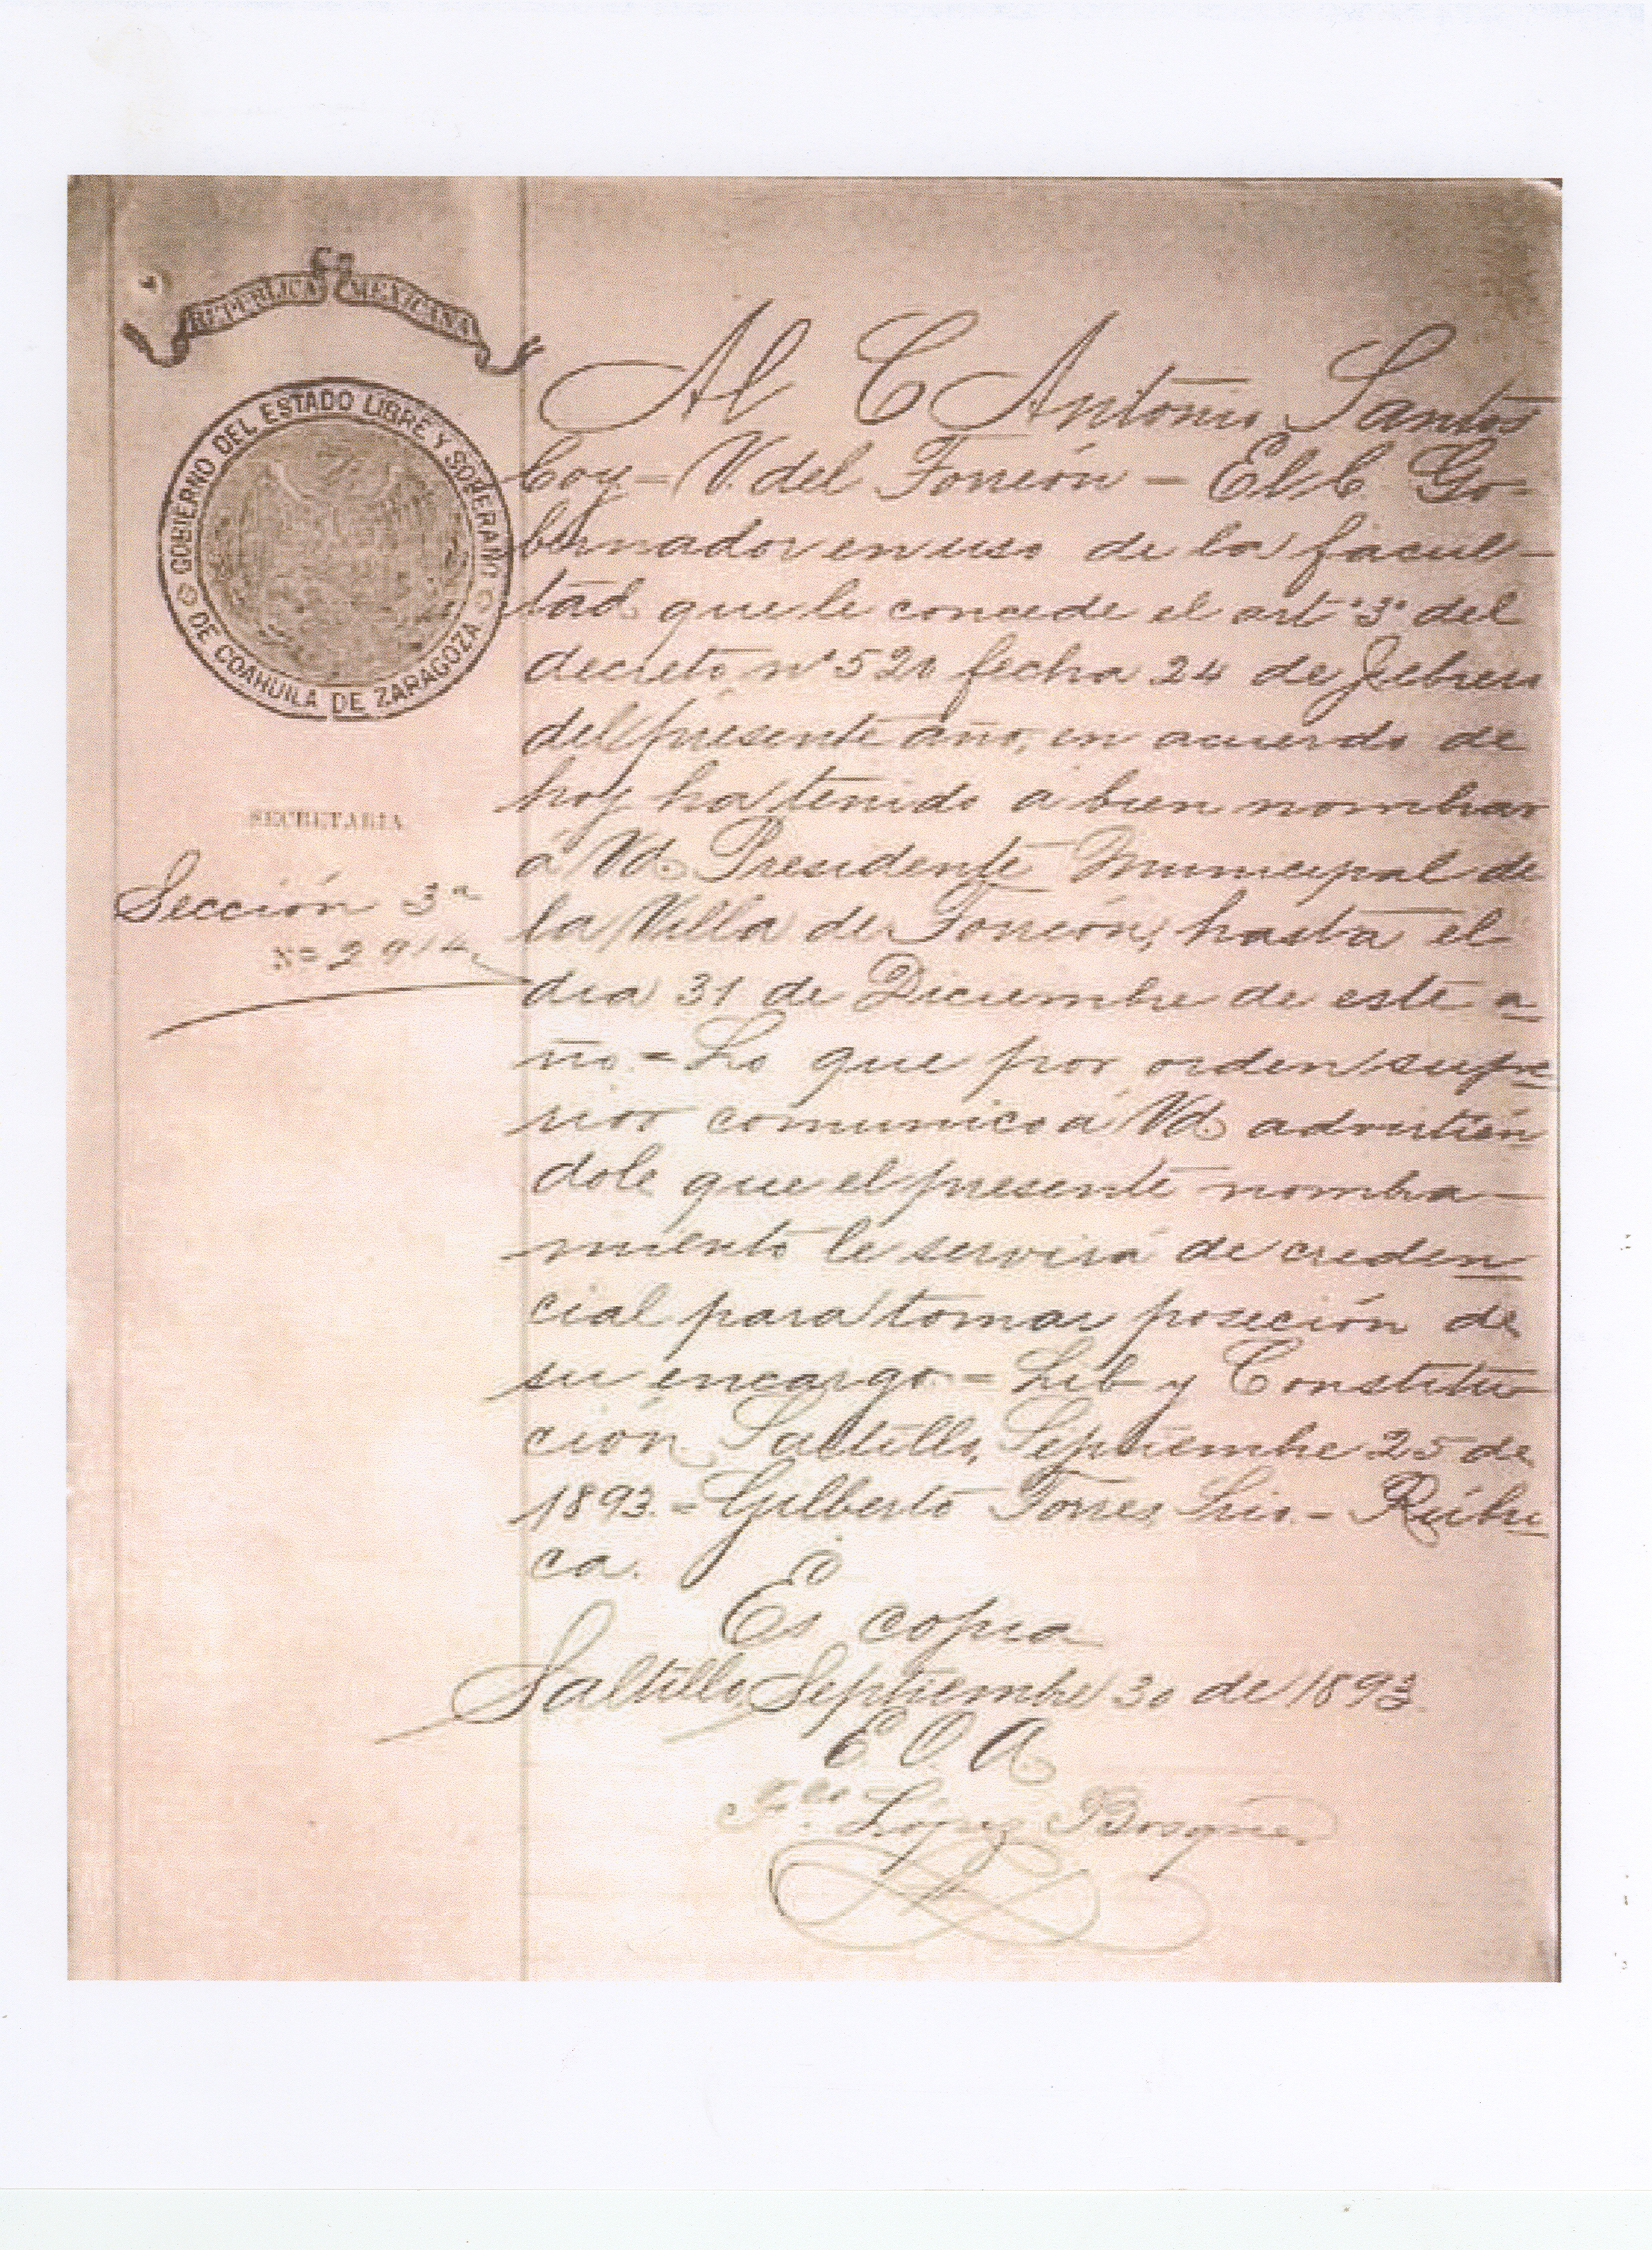 REPUBLICA MEXICANA
GOBIERNO DEL ESTADO LIBRE Y SOBERANO
DE COAHUILA DE ZARAGOZA
SECRETARIA
Sección 3ª
Nº 2914
Al C Antonio Santos
Coy = V. del Torreón - El C. Go-
bernador en uso de la facul-
tad que le concede el artº 3º del
decreto nº 520 fecha 24 de Febrero
del presente año, en acuerdo de
hoy ha tenido á bien nombrar
á Vd. Presidente Municipal de
la Villa de Torreón, hasta el
dia 31 de Diciembre de este a-
ño. = Lo que por orden supe-
rior comunico á Vd. advirtien
dole que el presente nombra-
miento le servirá de creden-
cial para tomar poseción de
su encargo. = Lib y Constitu-
ción Saltillo, Septiembre 25 de
1893. = Gilberto Torres Srio. - Rúbri-
ca.
Es copia
Saltillo Septiembre 30 de 1893.
E. O. A.
Fco. López Bosque.